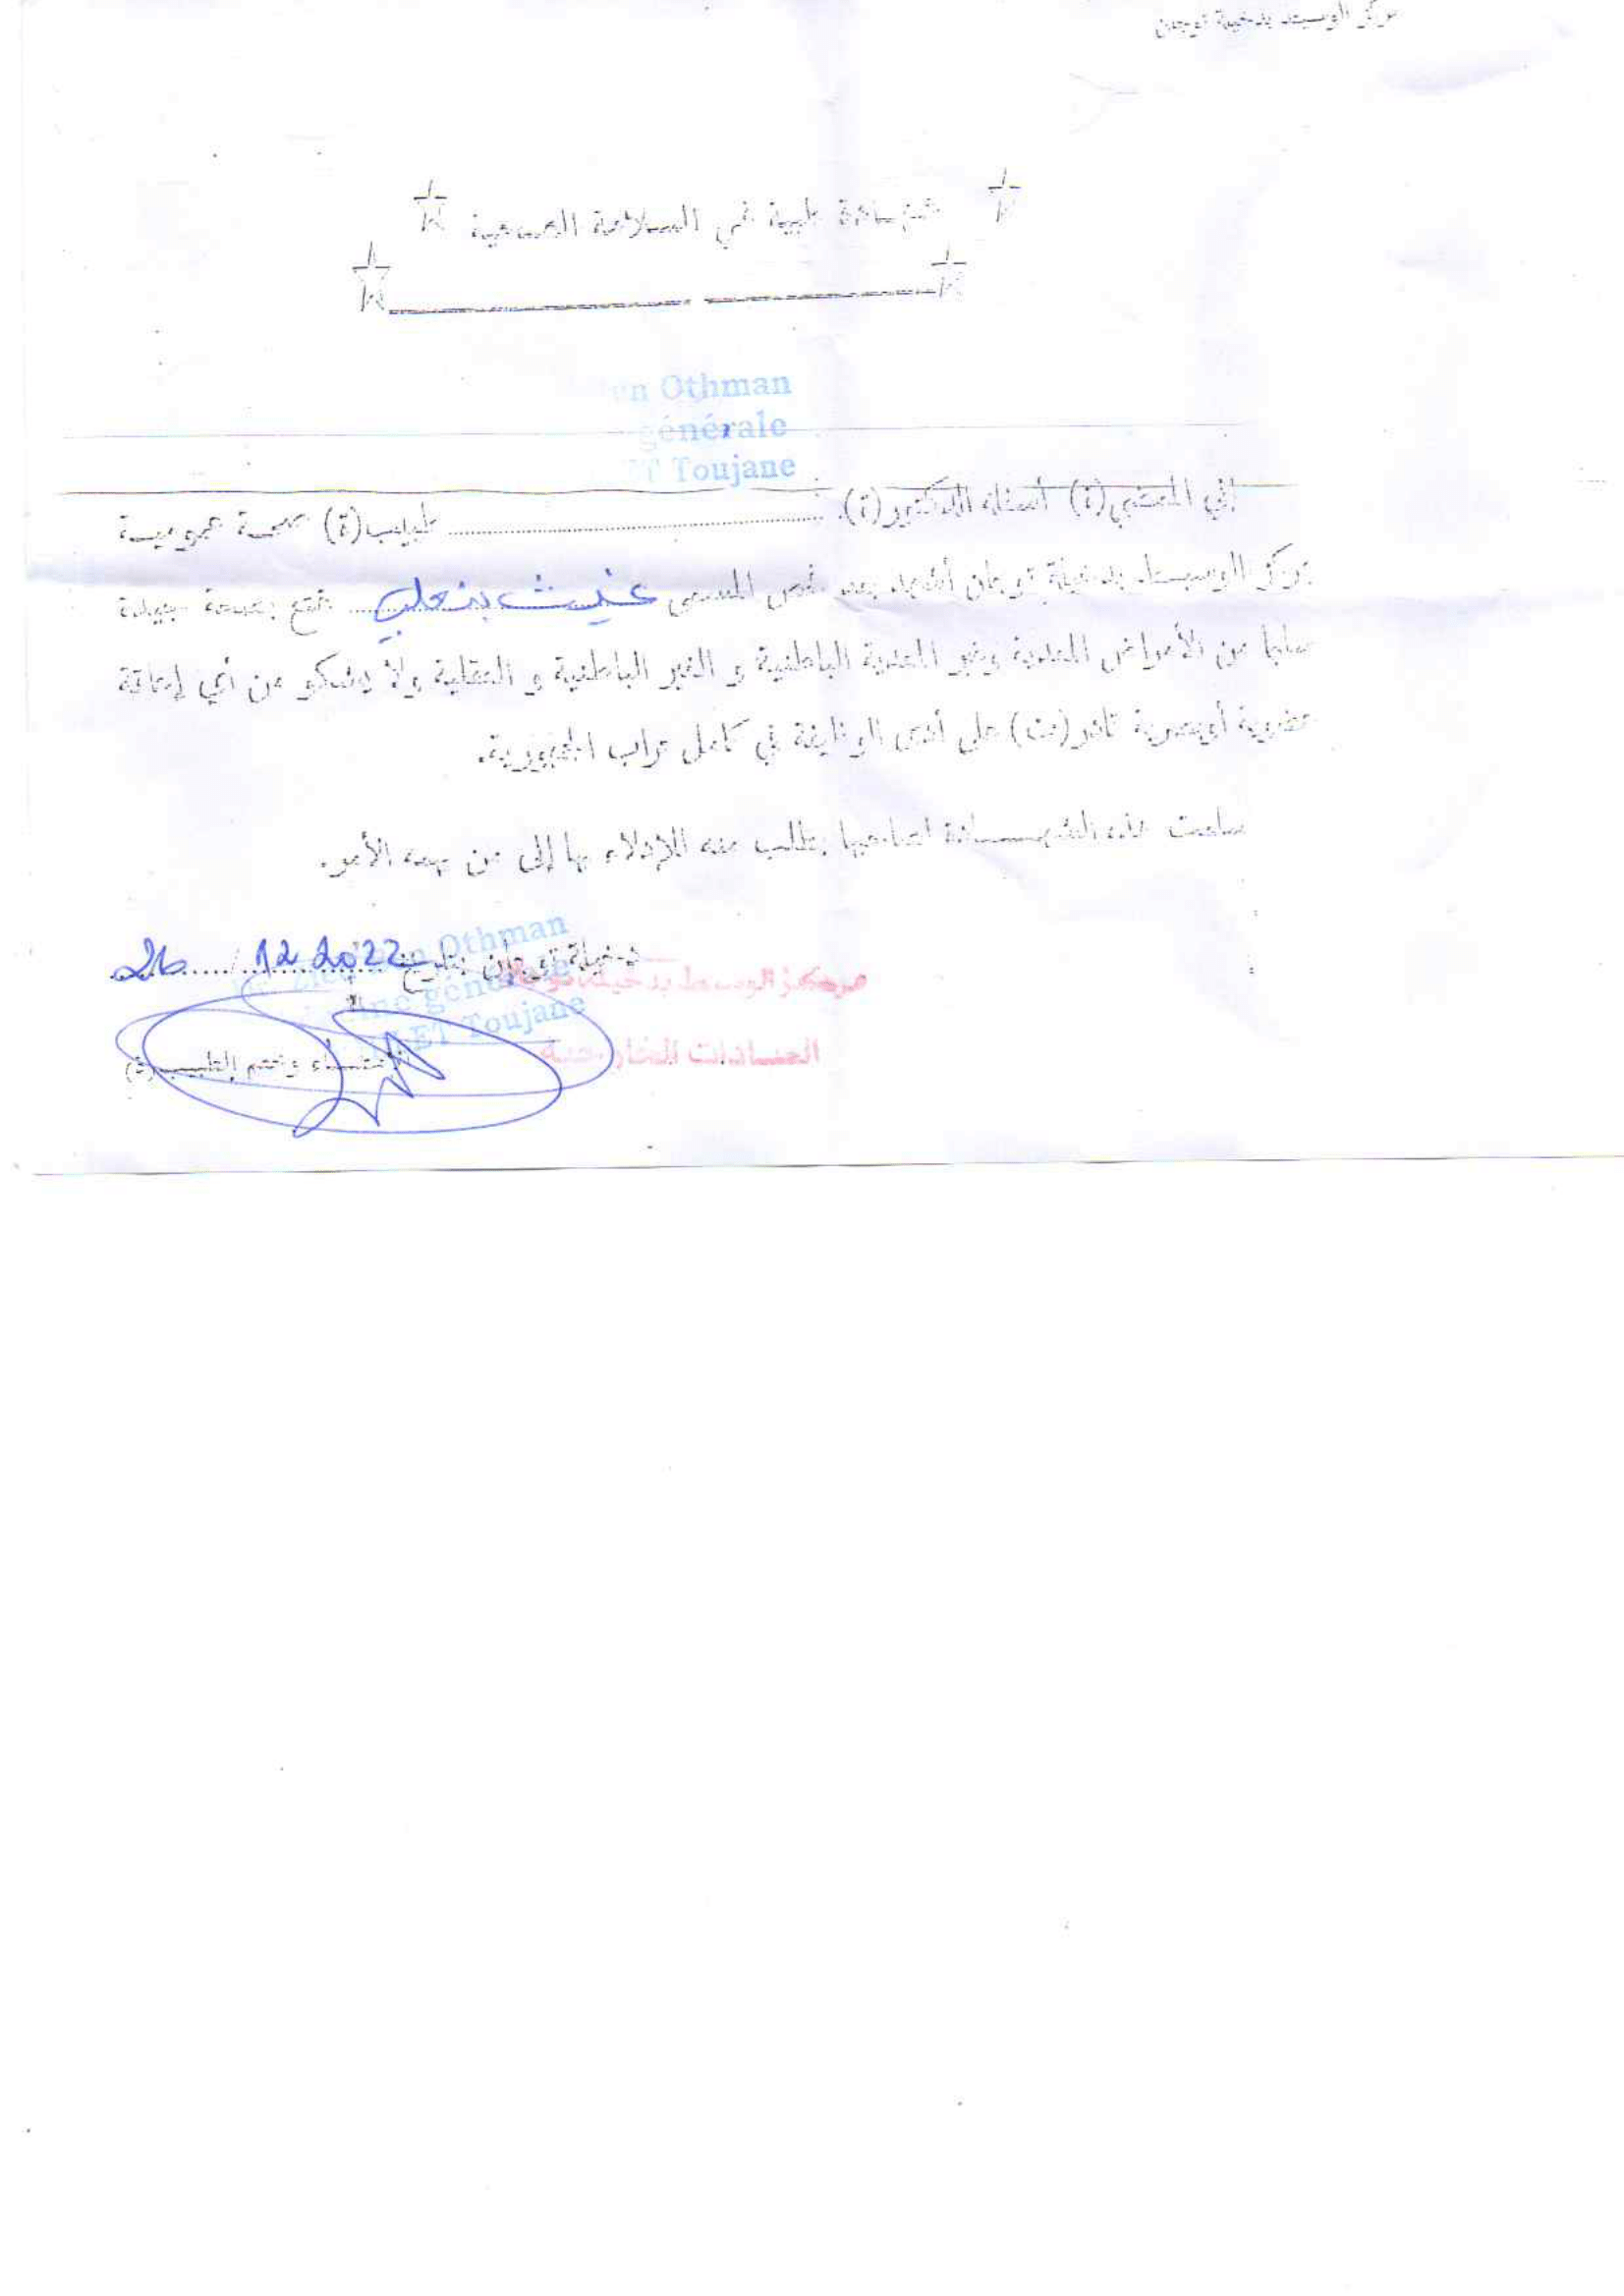 مركز الوسيط بدخيلة توجان
شهادة طبية في السلامة الصحية
Othman
générale
Toujane
إني الممضي(ة) أسفله الدكتور(ة) طبيب(ة) صحة عمومية
بمركز الوسيط بدخيلة توجان أشهد بعد فحص المسمى بنعلي تمتع بصحة جيدة
سالما من الأمراض المعدية وغير المعدية الباطنية و الغير الباطنية و العقلية ولا يشكو من أي إعاقة
عضوية أو بصرية قادر(ة) على أداء الوظيفة في كامل تراب الجمهورية.
سلمت هذه الشهادة لصاحبها بطلب منه للإدلاء بها إلى من يهمه الأمر.
دخيلة توجان بتاريخ 26 / 12 2022
Othman
générale
Toujane
مركز الوسيط بدخيلة توجان
العيادات الخارجية
الإمضاء وختم الطبيب(ة)